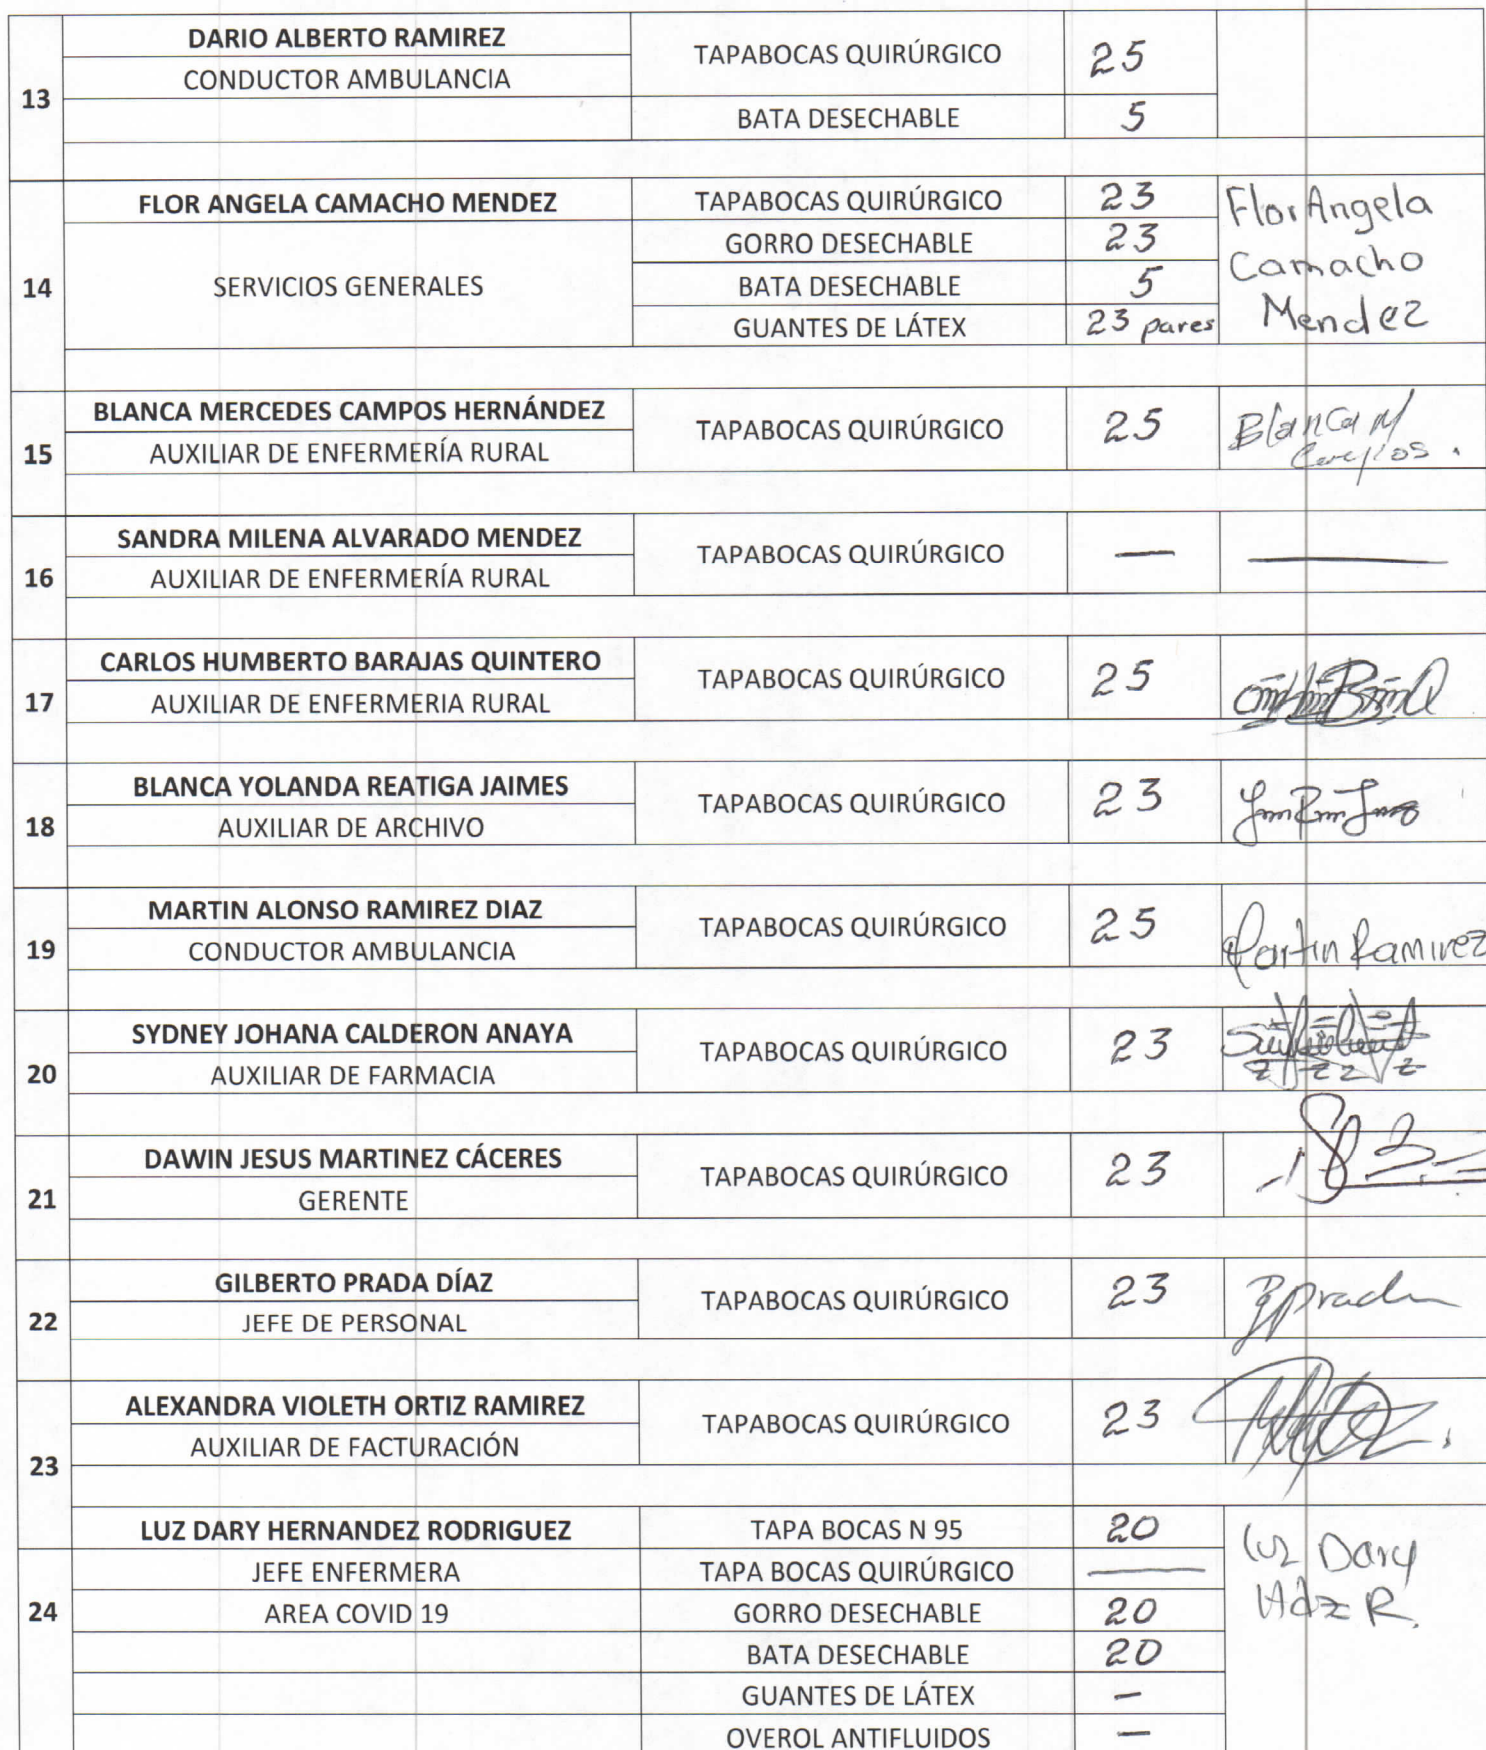 13 DARIO ALBERTO RAMIREZ TAPABOCAS QUIRÚRGICO 25
CONDUCTOR AMBULANCIA
BATA DESECHABLE 5
14 FLOR ANGELA CAMACHO MENDEZ TAPABOCAS QUIRÚRGICO 23 Flor Angela
GORRO DESECHABLE 23 Camacho
SERVICIOS GENERALES BATA DESECHABLE 5 Mendez
GUANTES DE LÁTEX 23 pares
15 BLANCA MERCEDES CAMPOS HERNÁNDEZ TAPABOCAS QUIRÚRGICO 25 Blanca M
AUXILIAR DE ENFERMERÍA RURAL
16 SANDRA MILENA ALVARADO MENDEZ TAPABOCAS QUIRÚRGICO — —
AUXILIAR DE ENFERMERÍA RURAL
17 CARLOS HUMBERTO BARAJAS QUINTERO TAPABOCAS QUIRÚRGICO 25
AUXILIAR DE ENFERMERIA RURAL
18 BLANCA YOLANDA REATIGA JAIMES TAPABOCAS QUIRÚRGICO 23
AUXILIAR DE ARCHIVO
19 MARTIN ALONSO RAMIREZ DIAZ TAPABOCAS QUIRÚRGICO 25 Martin Ramirez
CONDUCTOR AMBULANCIA
20 SYDNEY JOHANA CALDERON ANAYA TAPABOCAS QUIRÚRGICO 23
AUXILIAR DE FARMACIA
21 DAWIN JESUS MARTINEZ CÁCERES TAPABOCAS QUIRÚRGICO 23
GERENTE
22 GILBERTO PRADA DÍAZ TAPABOCAS QUIRÚRGICO 23 Prada
JEFE DE PERSONAL
23 ALEXANDRA VIOLETH ORTIZ RAMIREZ TAPABOCAS QUIRÚRGICO 23
AUXILIAR DE FACTURACIÓN
24 LUZ DARY HERNANDEZ RODRIGUEZ TAPA BOCAS N 95 20 Luz Dary
JEFE ENFERMERA TAPA BOCAS QUIRÚRGICO — Hdz R.
AREA COVID 19 GORRO DESECHABLE 20
BATA DESECHABLE 20
GUANTES DE LÁTEX —
OVEROL ANTIFLUIDOS —